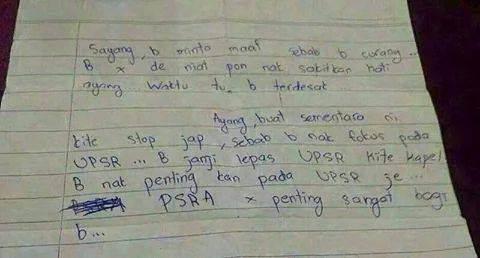 Sayang, b minta maaf sebab b curang...
B x de niat pon nak sakitkan hati
ayang... Waktu tu, b terdesak...
Ayang, buat sementara ni,
kite stop jap, sebab b nak fokus pada
UPSR... B janji lepas UPSR kite kapel
B nak penting kan pada UPSR je...
PSRA x penting sangat bagi
b...